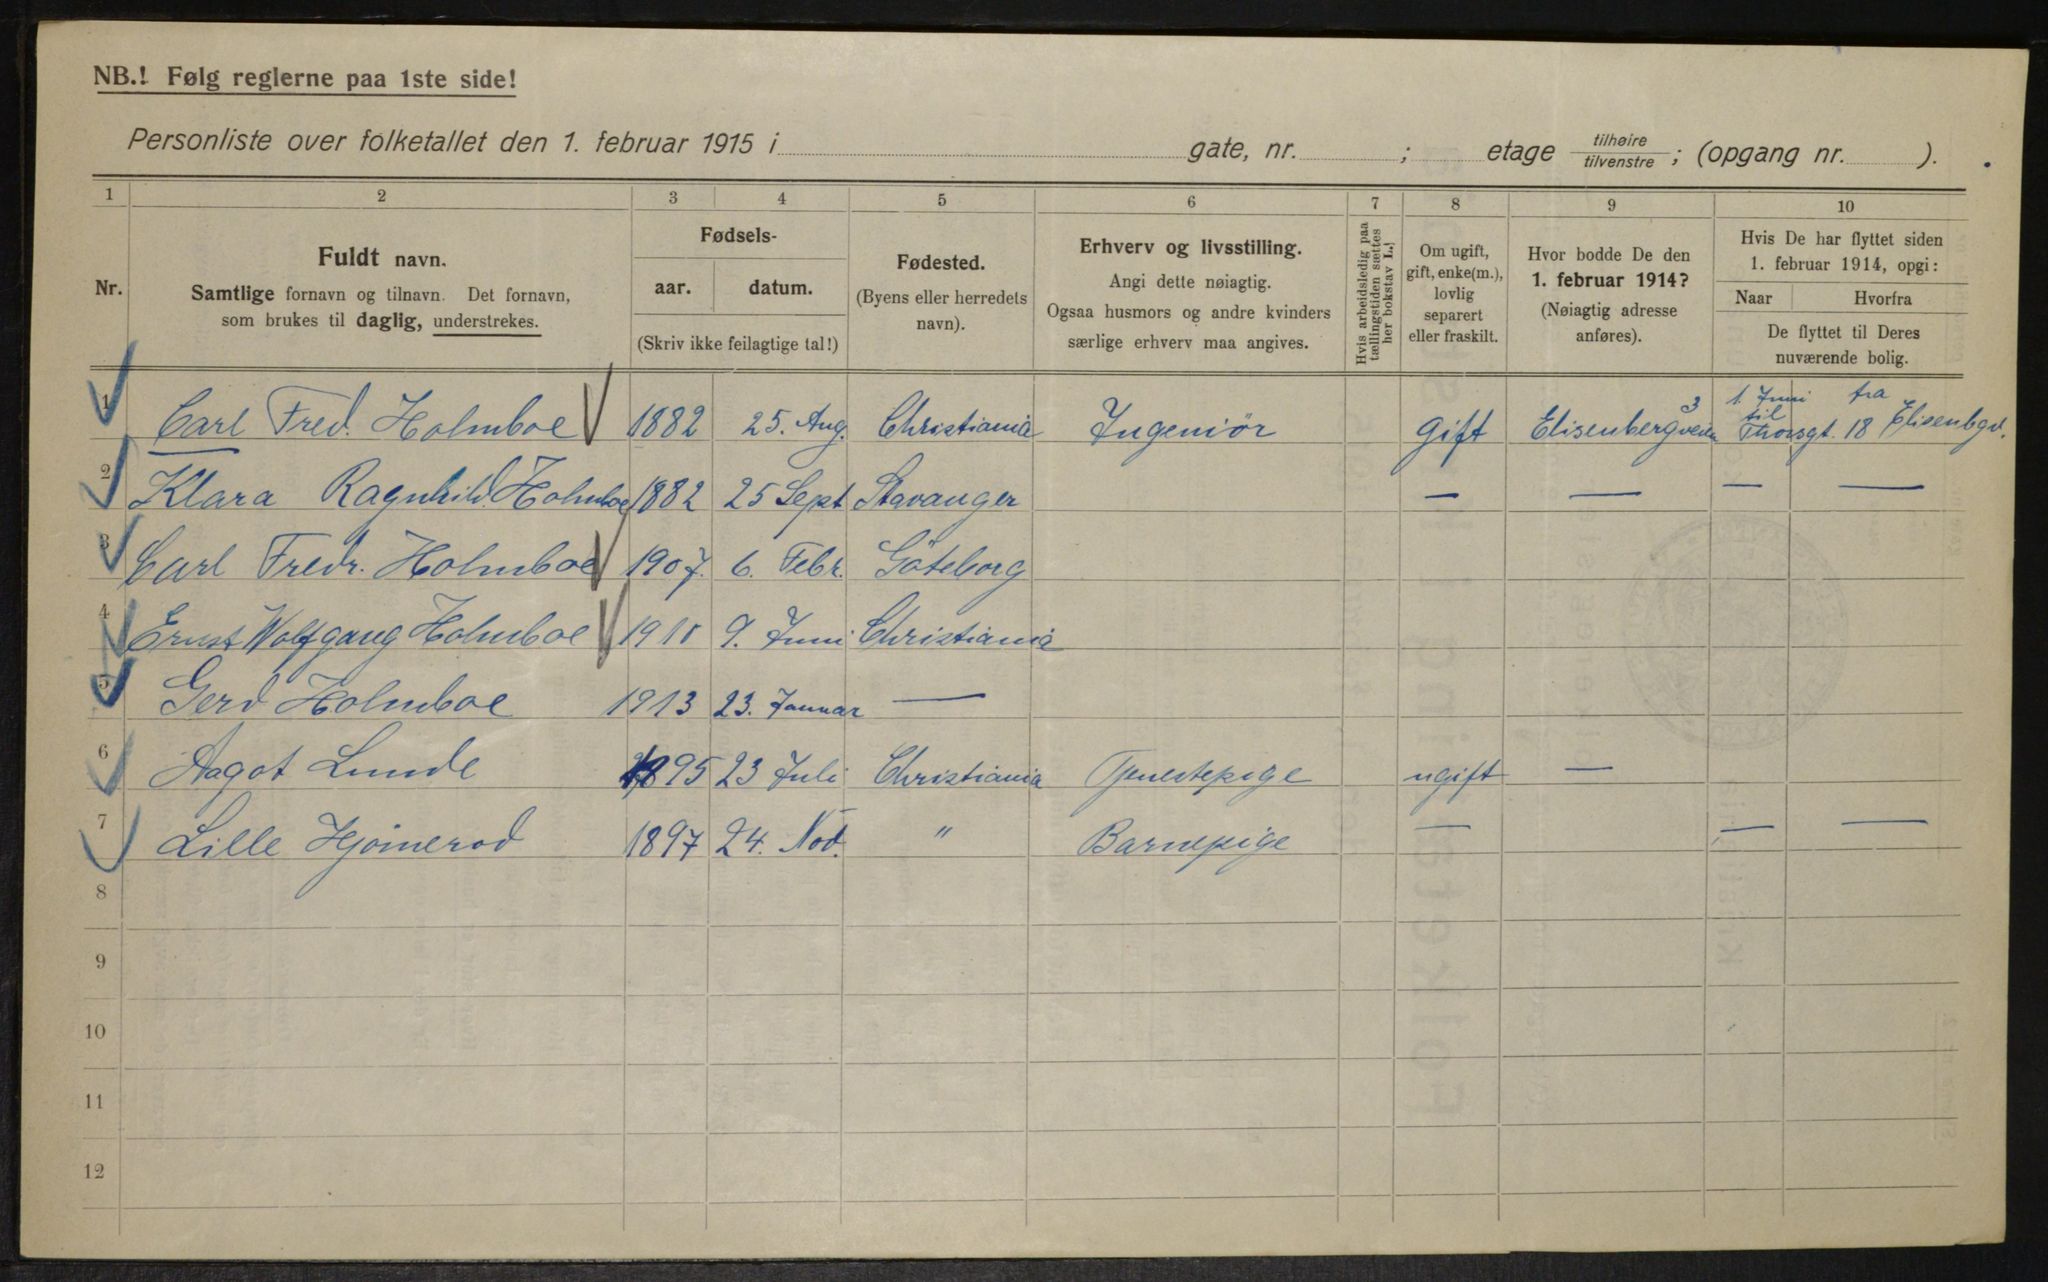 NB.! Følg reglerne paa 1ste side!
Personliste over folketallet den 1. februar 1915 i gate, nr. ; etage tilhøire tilvenstre ; (opgang nr. ).
1 2 3 4 5 6 7 8 9 10
Nr.
Fuldt navn.
Samtlige fornavn og tilnavn. Det fornavn,
som brukes til daglig, understrekes.
Fødsels-
aar. datum.
(Skriv ikke feilagtige tal!)
Fødested.
(Byens eller herredets
navn).
Erhverv og livsstilling.
Angi dette nøiagtig.
Ogsaa husmors og andre kvinders
særlige erhverv maa angives.
Hvis arbeidsledig paa
tællingstiden sættes
her bokstav L.!
Om ugift,
gift, enke(m.),
lovlig
separert
eller fraskilt.
Hvor bodde De den
1. februar 1914?
(Nøiagtig adresse
anføres).
Hvis De har flyttet siden
1. februar 1914, opgi:
Naar Hvorfra
De flyttet til Deres
nuværende bolig.
1 Carl Fred. Holmboe 1882 25. Aug. Christiania Ingeniör gift Elisenbergveien 3 1. Juni til Thorsgt. 18 fra Elisenbgv.
2 Klara Ragnhild Holmboe 1882 25 Sept Stavanger — — — —
3 Carl Fredr. Holmboe 1907. 6. Febr. Göteborg
4 Ernst Wolfgang Holmboe 1910 9. Juni Christiania
5 Gerd Holmboe 1913 23. Januar —
6 Aagot Lunde 1895 23 Juli Christiania Tjenestepige ugift —
7 Lille 1897 24. Nov. " Barnepige — — —
8
9
10
11
12